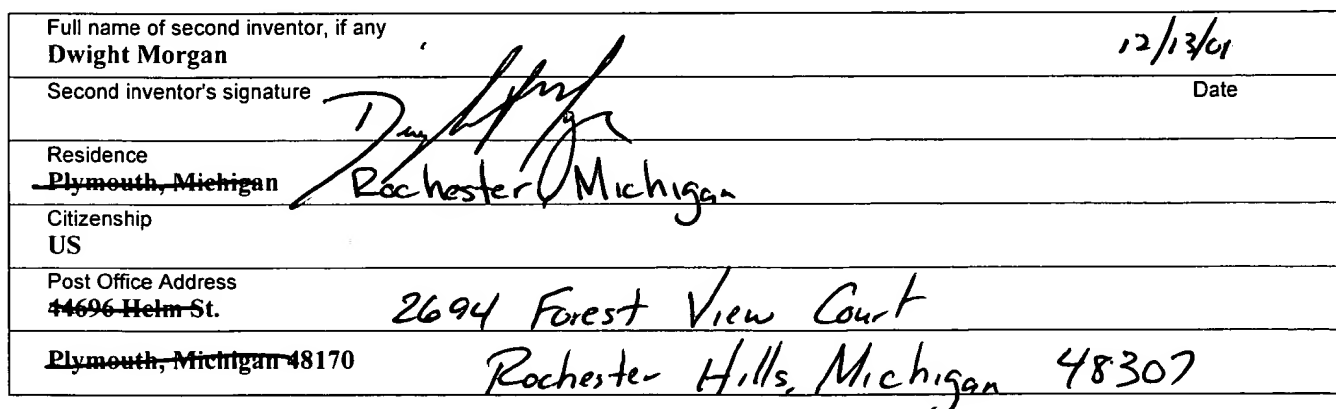 Full name of second inventor, if any
Dwight Morgan 12/13/01
Second inventor's signature Date
Residence
Plymouth, Michigan Rochester, Michigan
Citizenship
US
Post Office Address
44696 Helm St. 2694 Forest View Court
Plymouth, Michigan 48170 Rochester Hills, Michigan 48307